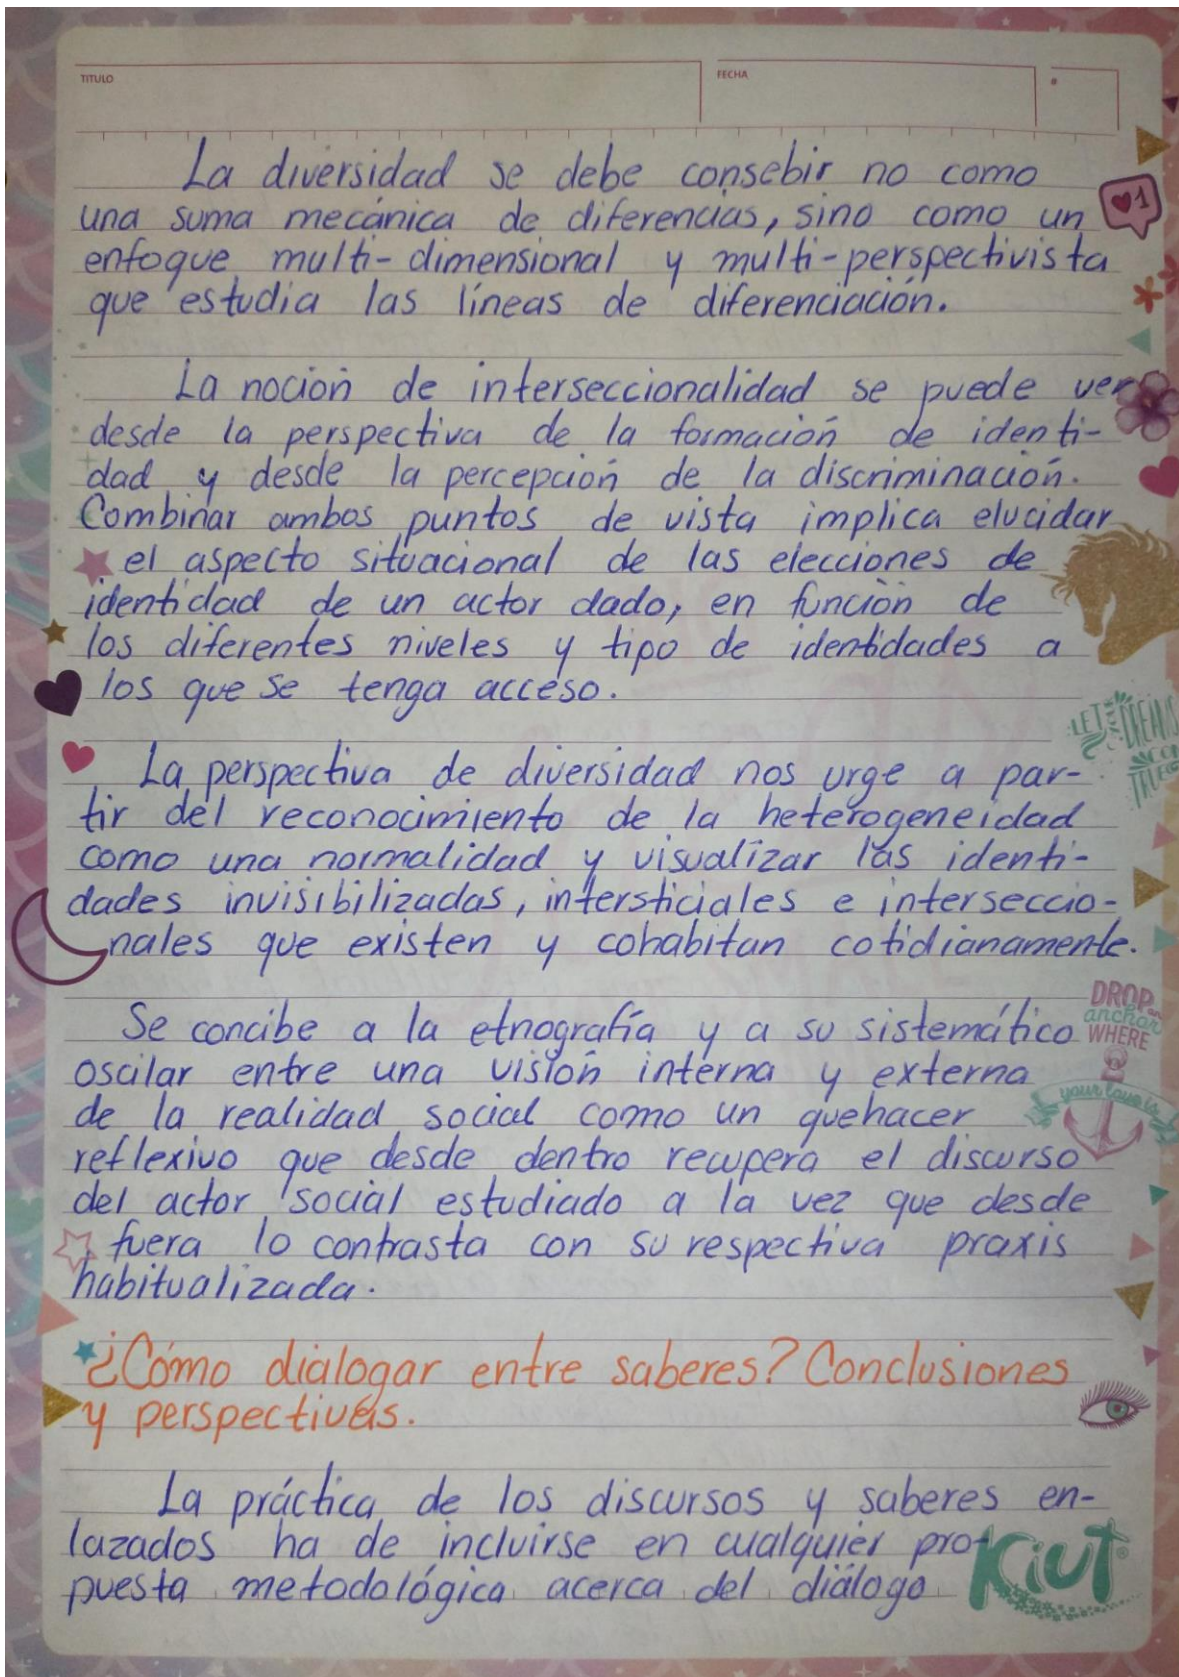 TITULO
FECHA
La diversidad se debe consebir no como
una suma mecánica de diferencias, sino como un
enfoque multi-dimensional y multi-perspectivista
que estudia las líneas de diferenciación.
La noción de interseccionalidad se puede ver
desde la perspectiva de la formación de identi-
dad y desde la percepción de la discriminación.
Combinar ambos puntos de vista implica elucidar
el aspecto situacional de las elecciones de
identidad de un actor dado, en función de
los diferentes niveles y tipo de identidades a
los que se tenga acceso.
LET YOUR DREAMS
COME
TRUE
La perspectiva de diversidad nos urge a par-
tir del reconocimiento de la heterogeneidad
como una normalidad y visualizar las identi-
dades invisibilizadas, intersticiales e interseccio-
nales que existen y cohabitan cotidianamente.
DROP
anchor
WHERE
your love is
Se concibe a la etnografía y a su sistemático
oscilar entre una visión interna y externa
de la realidad social como un quehacer
reflexivo que desde dentro recupera el discurso
del actor social estudiado a la vez que desde
fuera lo contrasta con su respectiva praxis
habitualizada.
¿Cómo dialogar entre saberes? Conclusiones
y perspectivas.
La práctica de los discursos y saberes en-
lazados ha de incluirse en cualquier pro-
puesta metodológica acerca del diálogo
Kiut